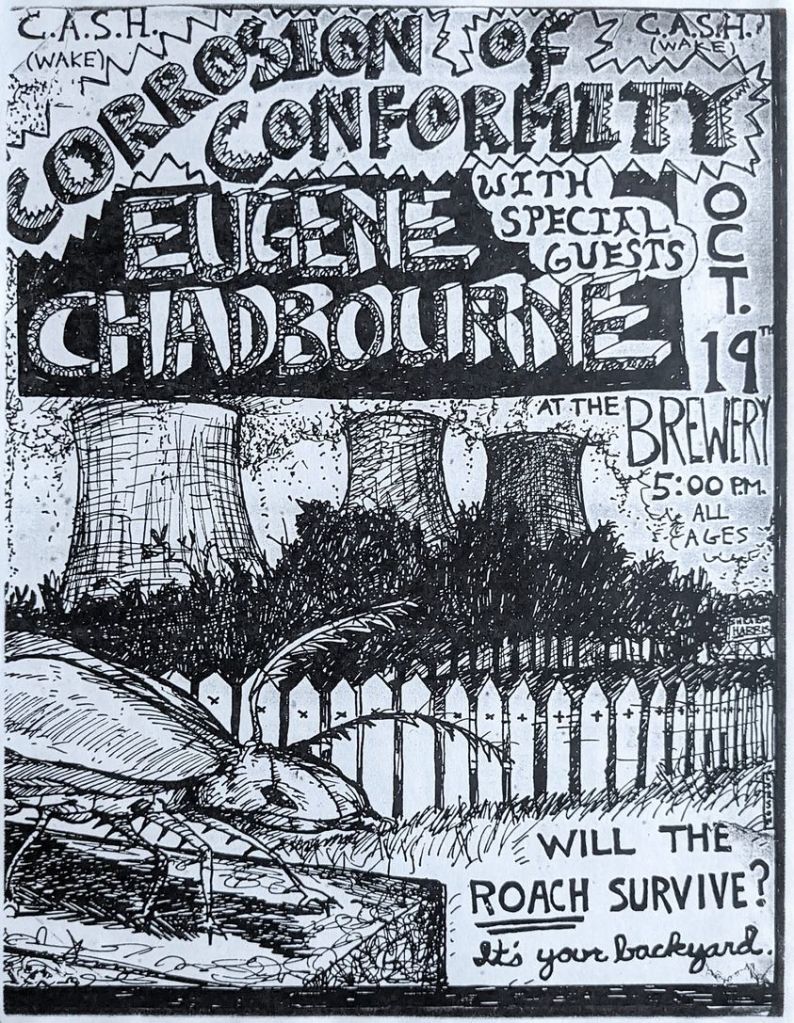 C.A.S.H.
(WAKE)
C.A.S.H.
(WAKE)
CORROSION OF
CONFORMITY
WITH
SPECIAL
GUESTS
EUGENE
CHADBOURNE
OCT.
19TH
AT THE
BREWERY
5:00 P.M.
ALL
AGES
HARRIS
WILL THE
ROACH SURVIVE?
It's your backyard.